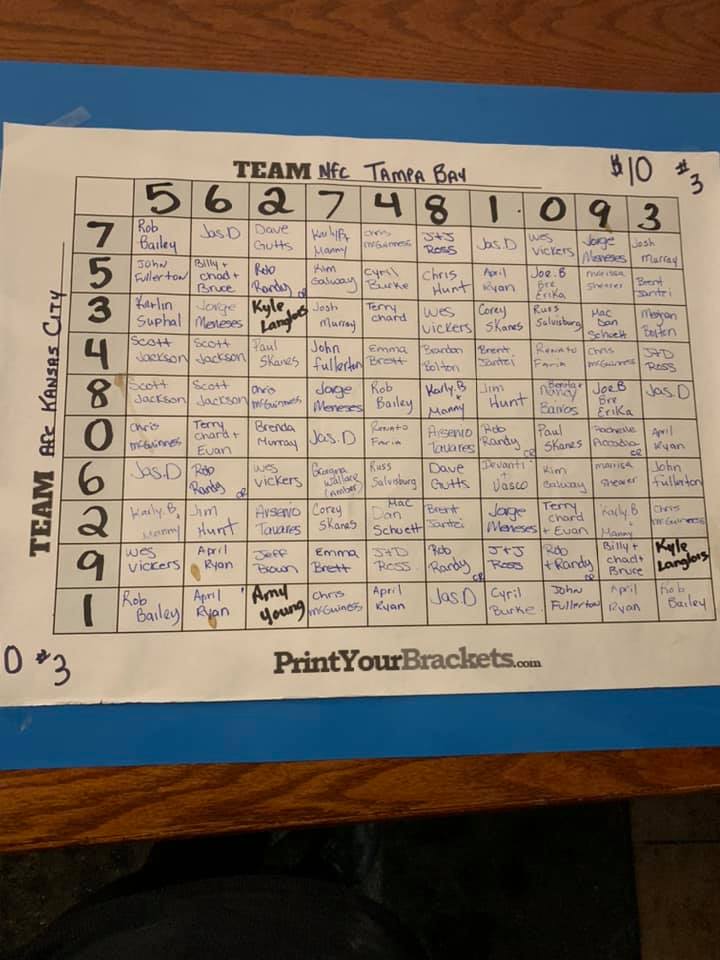 TEAM NFC TAMPA BAY $10 #3
5 6 2 7 4 8 1 0 9 3
TEAM AFC KANSAS CITY
7 Rob Bailey Jas.D Dave Gutts Karly B+ Manny Chris McGuinness J+J Ross Jas.D Wes Vickers Jorge Meneses Josh Murray
5 John Fullerton Billy + chad + Bruce Rob Randy or Kim Galway Cyril Burke Chris Hunt April Ryan Joe.B Bre Erika marissa shearer Brent Santei
3 Karlin Suphal Jorge Meneses Kyle Langlois Josh Murray Terry chard Wes Vickers Corey Skanes Russ Salvisburg Mac Dan Schuett Megan Bolton
4 Scott Jackson Scott Jackson Paul Skanes John fullerton Emma Brett Brandon Bolton Brent Santei Renato Faria Chris McGuinness J+D Ross
8 Scott Jackson Scott Jackson Chris McGuinness Jorge Meneses Rob Bailey Karly.B + Manny Jim Hunt Nancy Barros Joe.B Bre Erika Jas.D
0 Chris McGuinness Terry chard + Evan Brenda Murray Jas.D Renato Faria Arsenio Tavares Rob Randy or Paul Skanes Rochelle April Ryan
6 Jas.D Rob Randy or Wes Vickers Georgina Wallace (Amber) Russ Salvisburg Dave Gutts Devanti + Vasco Kim Galway marissa shearer John fullerton
2 Karly.B + Manny Jim Hunt Arsenio Tavares Corey Skanes Mac Dan Schuett Brent Santei Jorge Meneses Terry chard + Evan Karly.B + Manny Chris McGuinness
9 Wes Vickers April Ryan Jeff Brown Emma Brett J+D Ross Rob Randy or J+J Ross Rob + Randy or Billy + chad + Bruce Kyle Langlois
1 Rob Bailey April Ryan Amy Young Chris McGuiness April Ryan Jas.D Cyril Burke John Fullerton April Ryan Rob Bailey
0 #3
PrintYourBrackets.com